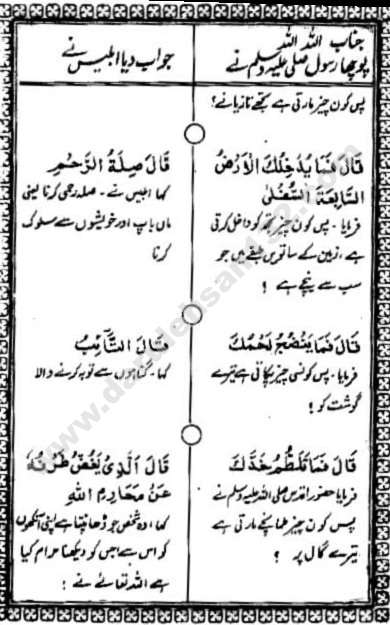 جناب اللہ اللہ
پوچھا رسول صلی علیہ وسلم نے
جواب دیا ابلیس نے
پس کون چیز مارتی ہے تجھے تازیانے؟
قَالَ فَمَا يُدْخِلُكَ الْاَرْضَ
السَّابِعَةَ السُّفْلٰى
فرمایا۔ پس کون چیز تجھ کو داخل کرتی
ہے، زمین کے ساتویں طبقے میں جو
سب سے نیچے ہے؟
قَالَ صِلَةُ الرَّحِمِ
کہا ابلیس نے۔ صلہ رحمی کرنا یعنی
ماں باپ اور خویشوں سے سلوک
کرنا
قَالَ فَمَا يَنْضُجُ لَحْمَكَ
فرمایا۔ پس کونسی چیز پکاتی ہے تیرے
گوشت کو!
قَالَ التَّائِبُ
کہا۔ گناہوں سے توبہ کرنے والا
قَالَ فَمَا تَلْطُمُ خَدَّكَ
فرمایا حضور اقدس صلی اللہ علیہ وسلم نے
پس کون چیز طمانچے مارتی ہے
تیرے گال پر؟
قَالَ الَّذِىْ يَغُضُّ طَرْفَهٗ
عَنْ مَحَارِمِ اللّٰهِ
کہا، وہ شخص جو ڈھانپتا ہے اپنی آنکھوں
کو اس سے جس کو دیکھنا حرام کیا
ہے اللہ تعالےٰ نے: